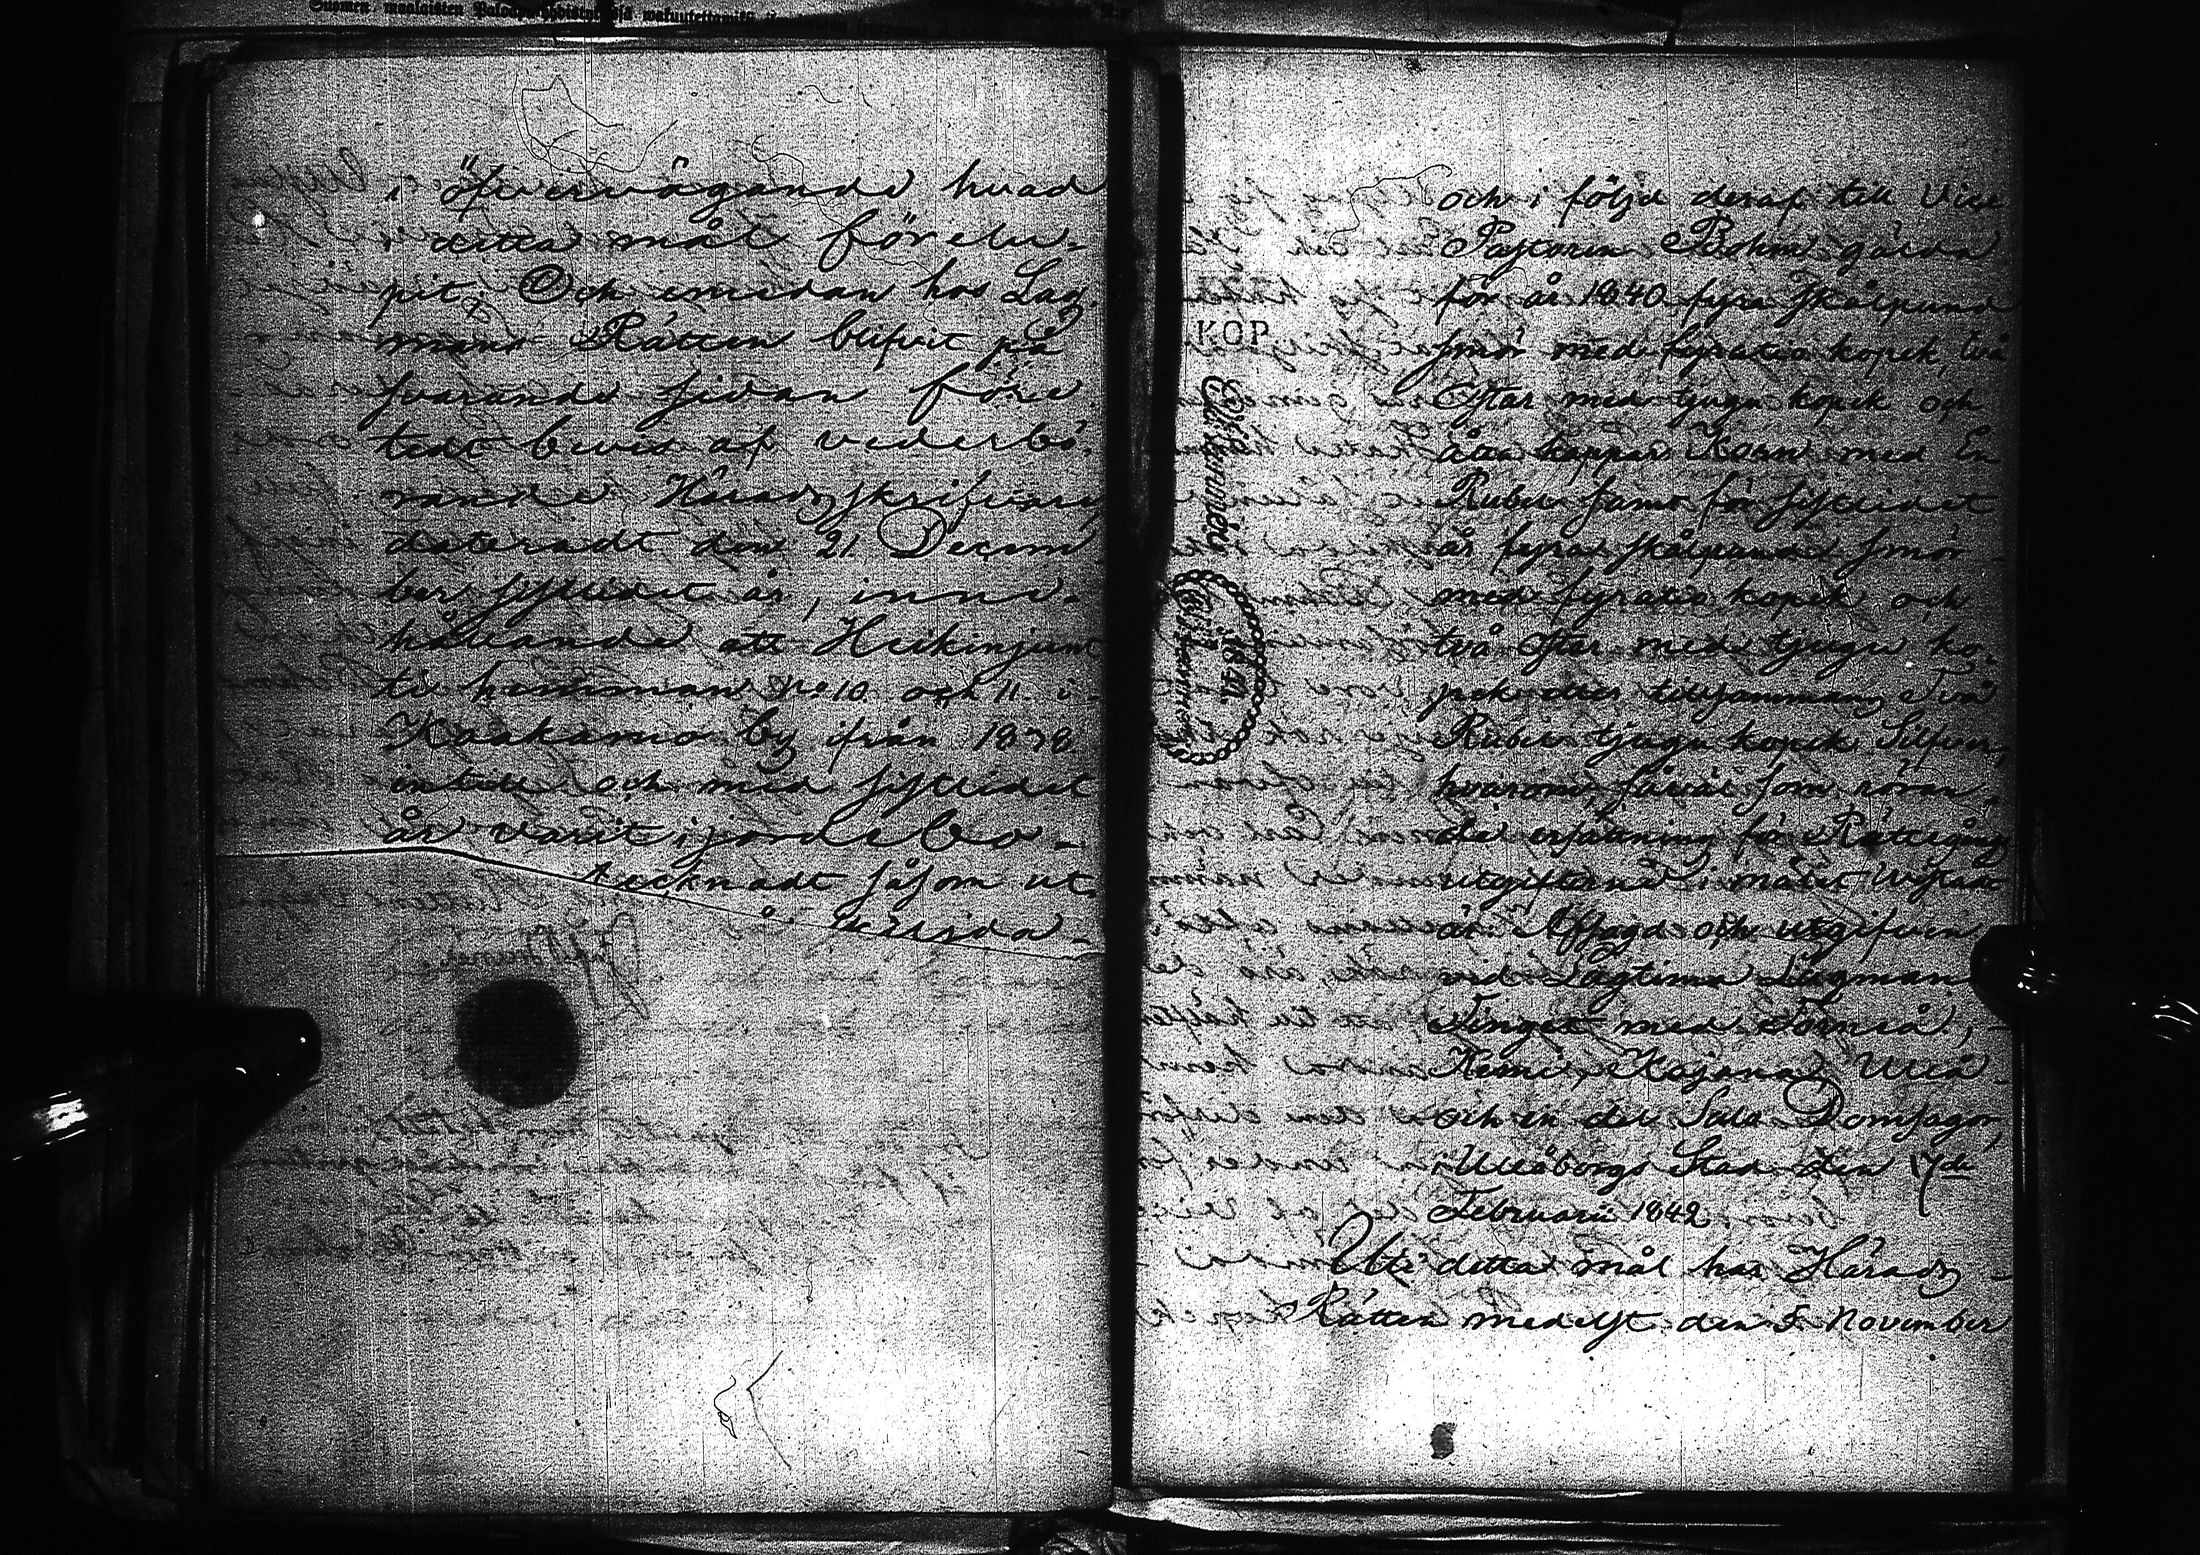 i öfvervägande hvad
i detta mål förelu-
pit. Och emedan hos Lag-
mans Rätten blifvit på
svarande sidan före
tedt bevis af vederbö-
rande Häradsskrifvare
dateradt den 21 Decem
ber sistlidet år, inne-
hållande att Heikinjunt
ti hemman No 10. och 11. i
Kaakamo by ifrån 1838
intill och med sistlidet
år varit i jordebo-
tecknadt såsom ut
och i följd deraf till Vice
Pastorn Bohm gälda
för år 1840 fyra skålpund
smör med fyratio kopek, två
Ostar med tjugu kopek och
åtta kappar Korn med En
Rubel samt för sistlidet
år fyra skålpund smör
med fyratio kopek och
två Ostar med tjugu ko-
pek eller tillsammans Två
Rubel tjugu kopek Silfver,
hvarom, såväl som röran-
de ersättning för Rättegångs
utgifterna i målet Utslag
är Afsagd och utgifven
vid Lagtima Lagmans
Tinget med Torneå,
Kemi, Kajana Uleå
och en del Salo Domsagor
i Uleåborgs Stad den 17de
Februarii 1842
Uti detta mål har Härads
Rätten medelst den 5 November
KOP.
1841.